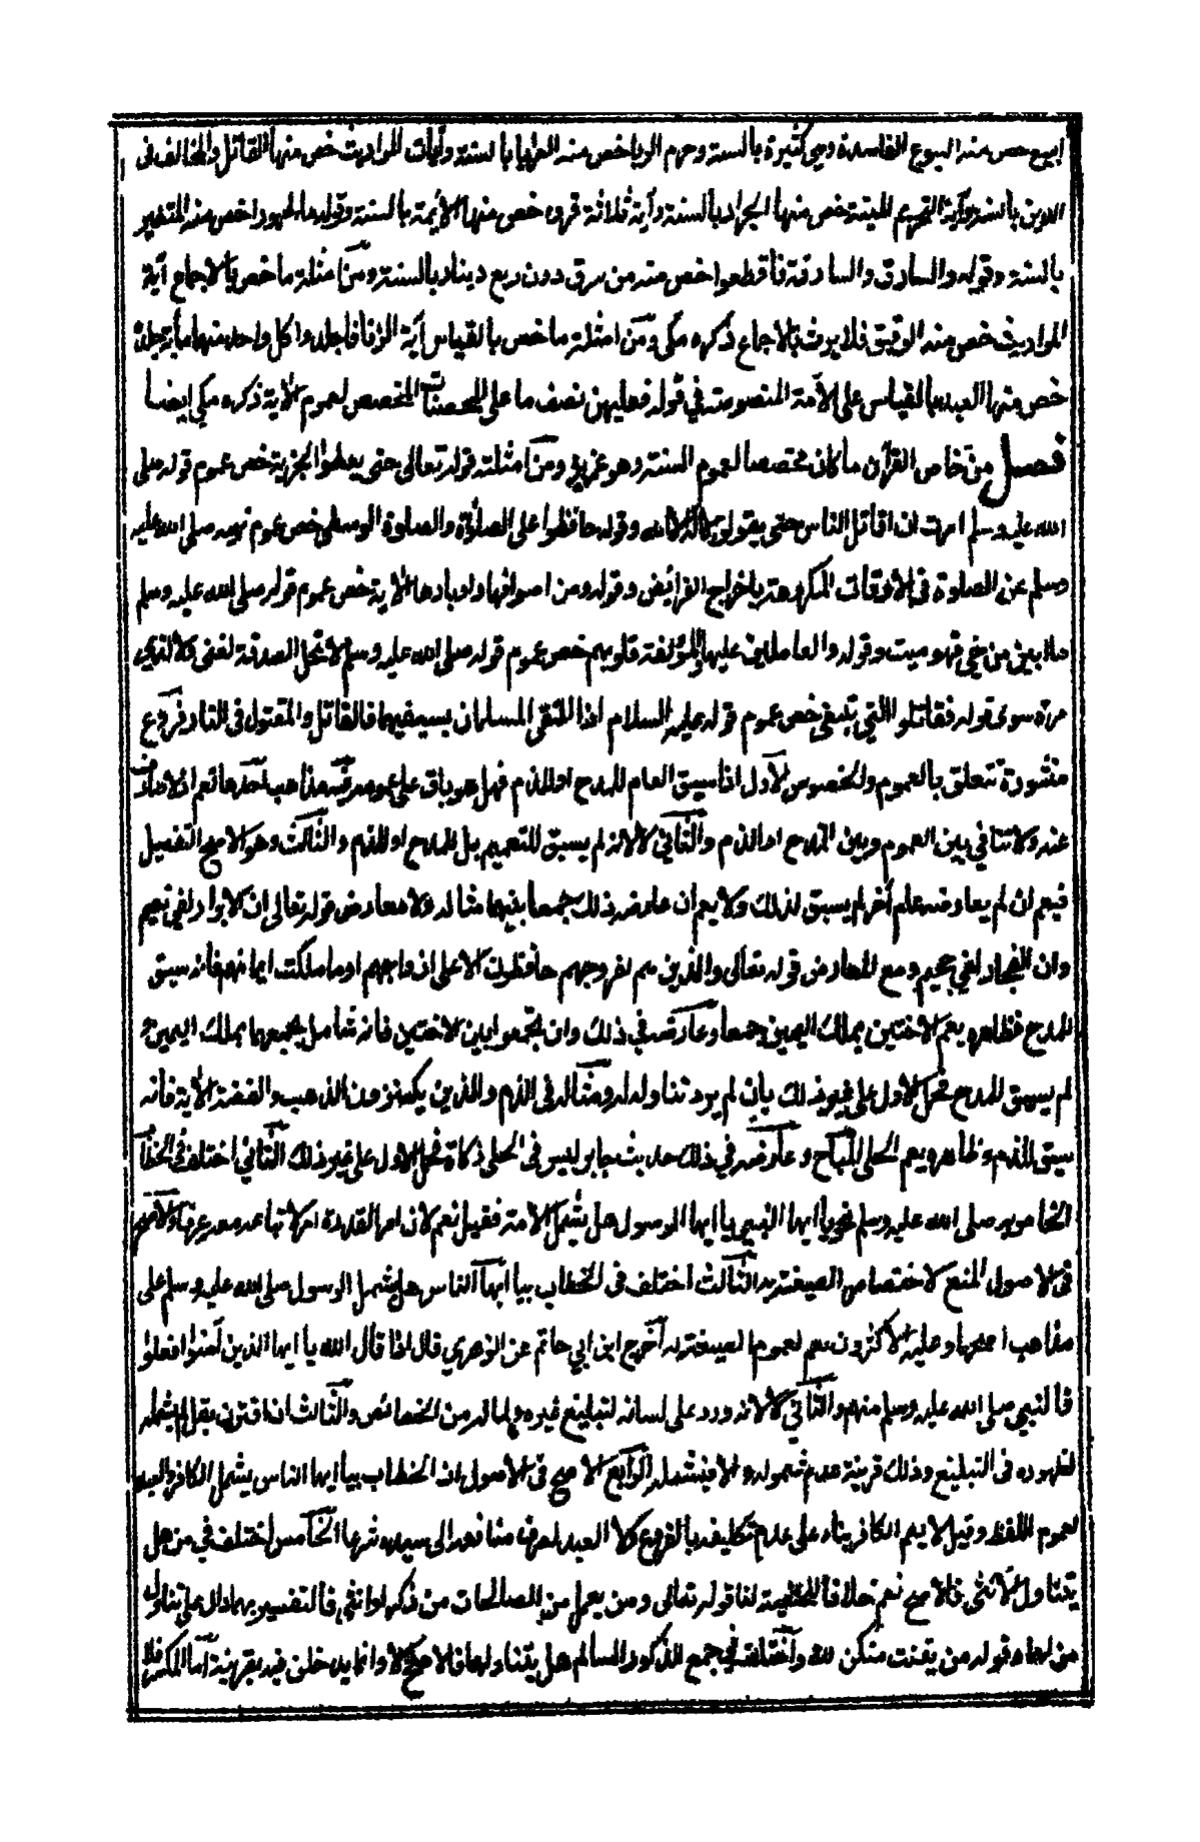 البيع خص منه البيوع الفاسدة وهي كثيرة بالسنة وحرم الربا خص منه العرايا بالسنة وآيات المواريث خص منها القاتل والمخالف في
الدين بالسنة وآية التحريم الميتة خص منها الجراد بالسنة وآية ثلاثة قروء خص منها الأمة بالسنة وقوله ماء طهورا خص منه المتغير
بالسنة وقوله والسارق والسارقة فاقطعوا خص منه من سرق دون ربع دينار بالسنة ومن أمثلة ما خص بالاجماع آية
المواريث خص منه الرقيق فلا يرث بالاجماع ذكره مكي ومن امثلة ما خص بالقياس آية الزنا فاجلدوا كل واحد منهما مأية جلدة
خص منها العبد بالقياس على الأمة المنصوصة في قوله فعليهن نصف ما على المحصنات المخصص لعموم الآية ذكره مكي ايضا
فصل من خاص القرآن ما كان مخصصا لعموم السنة وهو عزيز ومن امثلته قوله تعالى حتى يعطوا الجزية خص عموم قوله صلى
الله عليه وسلم امرت ان اقاتل الناس حتى يقولوا لا اله الا الله وقوله حافظوا على الصلوة والصلوة الوسطى خص عموم نهيه صلى الله عليه
وسلم عن الصلوة في الاوقات المكروهة باخراج الفرائض وقوله ومن اصوافها واوبارها الآية خص عموم قوله صلى الله عليه وسلم
ما ابين من حي فهو ميت وقوله والعاملين عليها والمؤلفة قلوبهم خص عموم قوله صلى الله عليه وسلم لا تحل الصدقة لغني ولا لذي
مرة سوى قوله فقاتلوا التي تبغي خص عموم قوله عليه السلام اذا التقى المسلمان بسيفيهما فالقاتل والمقتول في النار فروع
منثورة تتعلق بالعموم والخصوص الأول اذا سيق العام للمدح او الذم فهل هو باق على عمومه فيه مذاهب احدها نعم اذ لا صارف
عنه ولا تنافي بين العموم وبين المدح او الذم والثاني لا لانه لم يسق للتعميم بل للمدح او للذم والثالث وهو الاصح التفصيل
فيعم ان لم يعارضه عام آخر لم يسق لذلك ولا يعم ان عارضه ذلك جمعا بينهما مثاله ولا معارض قوله تعالى ان الابرار لفي نعيم
وان الفجار لفي جحيم ومع المعارض قوله تعالى والذين هم لفروجهم حافظون الا على ازواجهم او ما ملكت ايمانهم فانه سيق
للمدح فظاهره يعم الاختين بملك اليمين جمعا وعارضه في ذلك وان تجمعوا بين الاختين فانه شامل لجمعهما بملك اليمين و
لم يسق للمدح فحمل الاول على غير ذلك بان لم يرد تناوله له ومثاله في الذم والذين يكنزون الذهب والفضة الآية فانه
سيق للذم وظاهره يعم الحلي المباح وعارضه في ذلك حديث جابر ليس في الحلي زكاة فحمل الاول على غير ذلك الثاني اختلف في الخطاب
الخاص به صلى الله عليه وسلم نحو يا ايها النبي يا ايها الرسول هل يشمل الامة فقيل نعم لان امر القدوة امر لاتباعه معه عرفا والاصح
في الاصول المنع لاختصاص الصيغة به الثالث اختلف في الخطاب بيا ايها الناس هل يشمل الرسول صلى الله عليه وسلم على
مذاهب اصحها وعليه الاكثرون نعم لعموم الصيغة له اخرج ابن ابي حاتم عن الزهري قال اذا قال الله يا ايها الذين آمنوا افعلوا
فالنبي صلى الله عليه وسلم منهم والثاني لا لانه ورد على لسانه لتبليغ غيره ولما له من الخصائص والثالث ان اقترن بقل لم يشمله
لظهوره في التبليغ وذلك قرينة عدم شموله والا فيشمله الرابع الاصح في الاصول ان الخطاب بيا ايها الناس يشمل الكافر والعبد
لعموم اللفظ وقيل لا يعم الكافر بناء على عدم تكليفه بالفروع ولا العبد لصرف منافعه الى سيده شرعا الخامس اختلف في من هل
يتناول الأنثى فالاصح نعم خلافا للحنفية لنا قوله تعالى ومن يعمل من الصالحات من ذكر او انثى فالتفسير بهما دال على تناول
من لهما وقوله من يقنت منكن لله واختلف في جمع المذكور السالم هل يتناولها فالاصح لا وانما يدخلن فيه بقرينة اما المكسر فلا